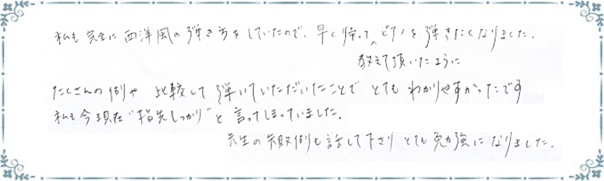 私も完全に西洋風の弾き方をしていたので、早く帰って、ピアノを弾きたくなりました。
教えて頂いたように
たくさんの例や 比較して弾いていただいたことで とてもわかりやすかったです
私も今現在"指先しっかり"と言ってしまっていました。
先生の失敗例も話して下さり とても勉強になりました。